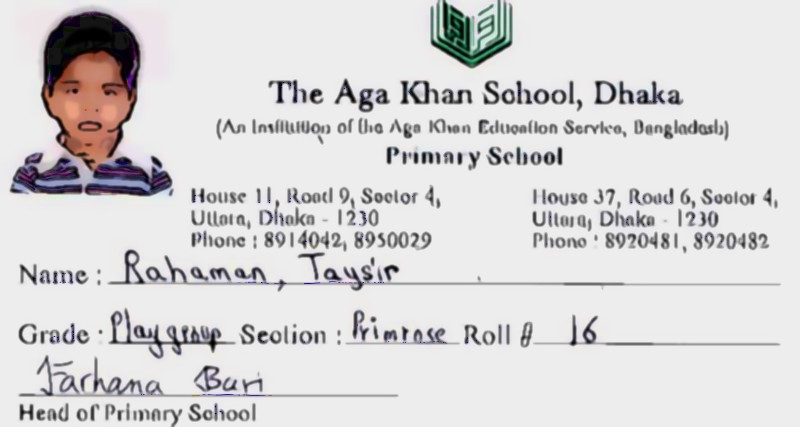 The Aga Khan School, Dhaka
(An Institution of the Aga Khan Education Service, Bangladesh)
Primary School
House 11, Road 9, Sector 4,
Uttara, Dhaka - 1230
Phone : 8914042, 8950029
House 37, Road 6, Sector 4,
Uttara, Dhaka - 1230
Phone : 8920481, 8920482
Name : Rahaman, Taysir
Grade : Playgroup Section : Primrose Roll # 16
Farhana Bari
Head of Primary School